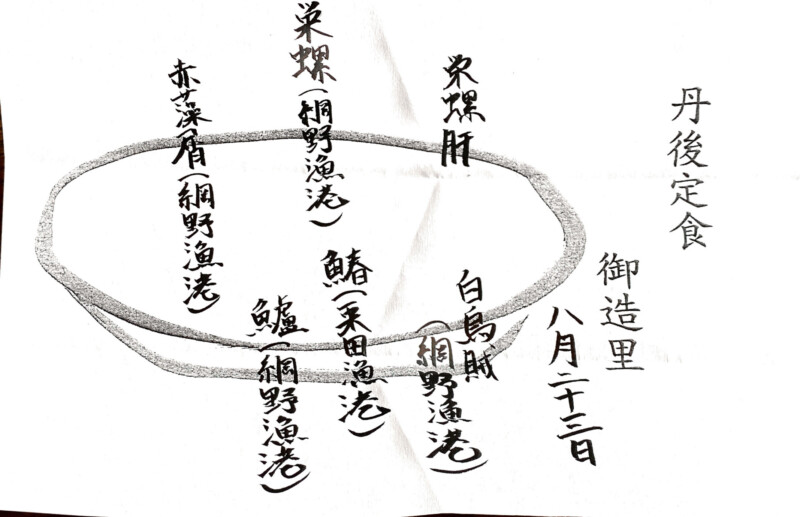 丹後定食
御造里
八月二十三日
栄螺肝
白烏賊
(網野漁港)
栄螺(網野漁港)
鰆(栗田漁港)
鱸(網野漁港)
赤藻屑(網野漁港)